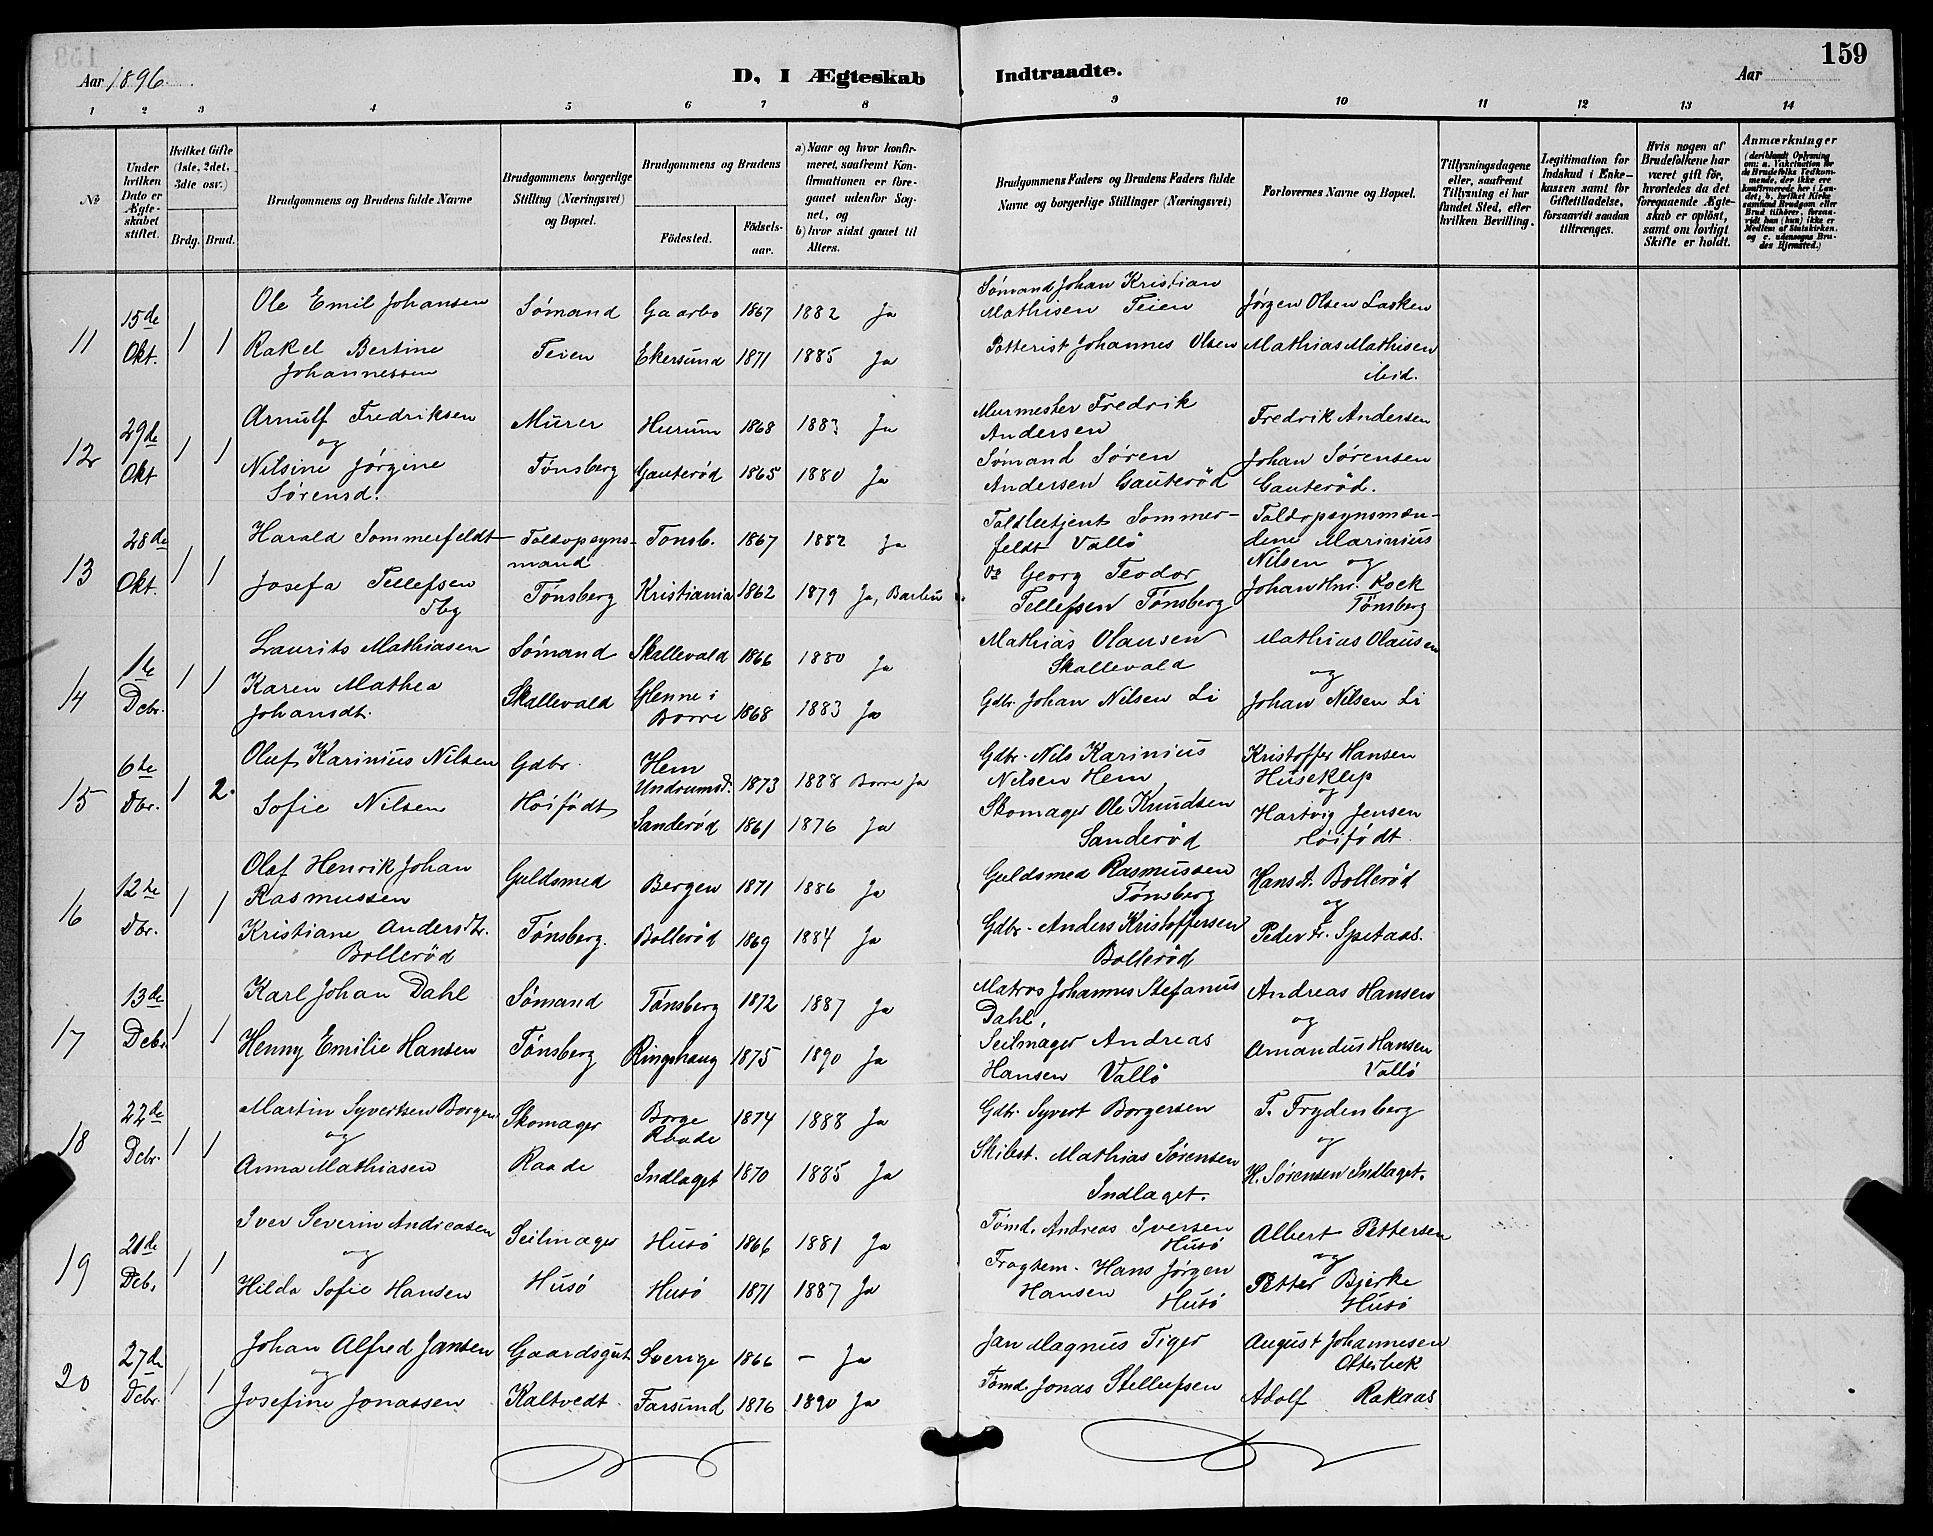 159
Aar 1896
D, I Ægteskab Indtraadte.
Aar
1 2 3 4 5 6 7 8 9 10 11 12 13 14
No
Under hvilken Dato er Ægteskabet stiftet.
Hvilket Gifte (1ste, 2det, 3die osv.)
Brdg. Brud.
Brudgommens og Brudens fulde Navne
Brudgommens borgerlige Stilling (Næringsvei) og Bopæl.
Brudgommens og Brudens
Fødested. Fødselsaar.
a) Naar og hvor konfirmeret, saafremt Konfirmationen er foregaaet udenfor Sognet, og
b) hvor sidst gaaet til Alters.
Brudgommens Faders og Brudens Faders fulde Navne og borgerlige Stillinger (Næringsvei)
Forlovernes Navne og Bopæl.
Tillysningsdagene eller, saafremt Tillysning ei har fundet Sted, efter hvilken Bevilling.
Legitimation for Indskud i Enkekassen samt for Giftetilladelse, forsaavidt saadan tiltrænges.
Hvis nogen af Brudefolkene har været gift før, hvorledes da det foregaaende Ægteskab er opløst, samt om lovligt Skifte er holdt.
Anmærkninger
(deriblandt Oplysning om: a. Vakcination for de Brudefolks Vedkommende, der ikke ere konfirmerede her i Landet; b. hvilket Kirkesamfund Brudgom eller Brud tilhører, forsaavidt han (hun) ikke er Medlem af Statskirken, og c. udensogns Brudes Hjemsted.)
11 15de Okt. 1 1
Ole Emil Johansen Sømand Gaarbo 1867 1882 Ja Sømand Johan Kristian Mathisen Teien Jørgen Olsen Lasken
Rakel Bertine Johannessen Teien Ekersund 1871 1885 Ja Potterist Johannes Olsen Mathias Mathisen
12 29de Okt 1 1
Arnulf Fredriksen Murer Hurum 1868 1883 Ja Murmester Fredrik Andersen Fredrik Andersen
og
Nilsine Jørgine Sørensd. Tønsberg Gauterød 1865 1880 Ja Sømand Søren Andersen Gauterød Johan Sørensen Gauterød.
13 28de Okt. 1 1
Harald Sommerfeldt Toldopsynsmand Tønsb. 1867 1882 Ja Toldbetjent Sommerfeldt Vallø Toldopsynsmændene Marinius Nilsen og
Josefa Tellefsen Tbg Tønsberg Kristiania 1862 1879 Ja, Georg Teodor Tellefsen Tønsberg Johan Hnr. Kock Tønsberg
14 1te Debr. 1 1
Laurits Mathiasen Sømand Skallevald 1866 1880 Ja Mathias Olausen Skallevald Mathias Olausen
og
Karen Mathea Johansdt. Skallevald Glenne i Borre 1868 1883 Ja Gdbr. Johan Nilsen Li Johan Nilsen Li
15 6te Dbr. 1 2.
Oluf Karinius Nilsen Gdbr. Hem Undrumsd. 1873 1888 Borre Ja Gdbr. Nils Karinius Nilsen Hem Kristoffer Hansen Huseklep
og
Sofie Nilsen Høifødt Sanderød 1861 1876 Ja Skomager Ole Knudsen Sanderød Hartvig Jensen Høifødt
16 12te Dbr. 1 1
Olaf Henrik Johan Rasmussen Guldsmed Bergen 1871 1886 Ja Guldsmed Rasmussen Tønsberg Hans A. Bollerød
og
Kristiane Andersdtr. Bollerød Tønsberg. Bollerød 1869 1884 Ja Gdbr. Anders Kristoffersen Bollerød Peder Fr. Spetaas.
17 13de Debr. 1 1
Karl Johan Dahl Sømand Tønsberg 1872 1887 Ja Matros Johannes Stefanus Dahl, Andreas Hansen
og
Henny Emilie Hansen Tønsberg Ringshaug 1875 1890 Ja Seilmager Andreas Hansen Vallø Amandus Hansen Vallø
18 22de Debr. 1 1
Martin Syvertsen Borgen Skomager Borge Raade 1874 1888 Ja Gdbr. Syvert Borgersen T. Frydenberg
og og
Anna Mathiasen Raade Indlaget 1870 1885 Ja Skibst. Mathias Sørensen Indlaget. H. Sørensen Indlaget.
19 21de Deb. 1 1
Iver Severin Andreasen Seilmager Husø 1866 1881 Ja Tømd. Andreas Iversen Husø Albert Pettersen
og og
Hilda Sofie Hansen Husø Husø 1871 1887 Ja Hans Jørgen Hansen Husø Petter Bjerke Husø
20 27de Debr. 1 1
Johan Alfred Jansen Gaardsgut Sverige 1866 – Ja Jan Magnus Tiger August Johannesen Otterbek
og
Josefine Jonassen Kaltvedt Farsund 1876 1890 Ja Tømd. Jonas Stellefsen Adolf Rakaas